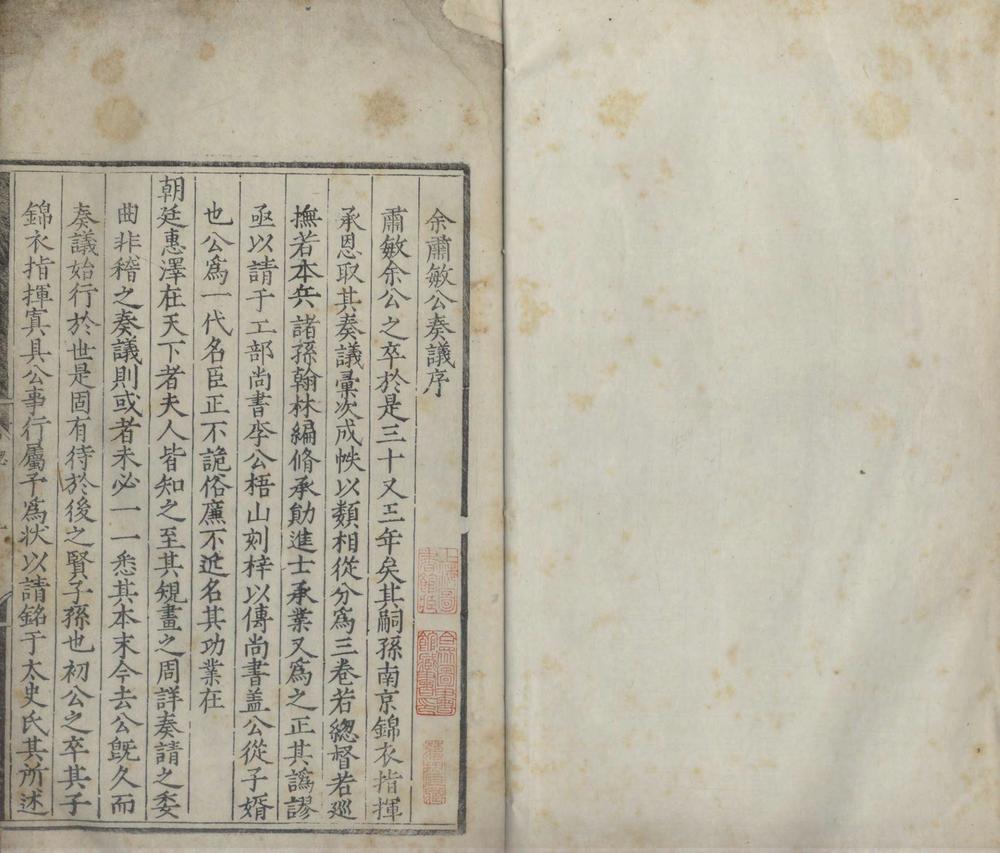 余肅敏公奏議序
肅敏余公之卒於是三十又三年矣其嗣孫南京錦衣指揮
承恩取其奏議彙次成帙以類相從分爲三卷若總督若巡
撫若本兵諸孫翰林編脩承勛進士承業又爲之正其譌謬
亟以請于工部尚書李公梧山刻梓以傳尚書盖公從子婿
也公爲一代名臣正不詭俗廉不近名其功業在
朝廷惠澤在天下者夫人皆知之至其規畫之周詳奏請之委
曲非稽之奏議則或者未必一一悉其本末今去公既久而
奏議始行於世是固有待於後之賢子孫也初公之卒其子
錦衣指揮寘具公事行屬予爲狀以請銘于太史氏其所述